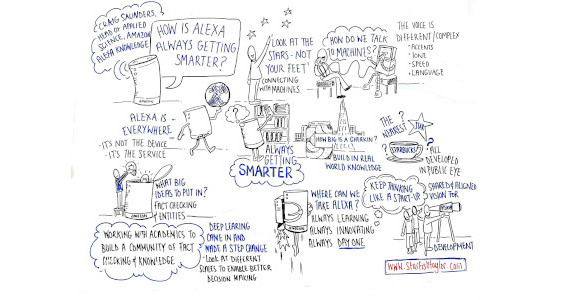 CRAIG SAUNDERS,
HEAD OF APPLIED
SCIENCE, AMAZON
ALEXA KNOWLEDGE
HOW IS ALEXA
ALWAYS GETTING
SMARTER?
LOOK AT THE
STARS - NOT
YOUR FEET'
CONNECTING
WITH MACHINES
HOW DO WE TALK
TO MACHINES?
THE VOICE IS
DIFFERENT/COMPLEX
- ACCENTS
- TONE
- SPEED
- LANGUAGE
ALEXA IS -
EVERYWHERE
- IT'S NOT THE DEVICE
- IT'S THE SERVICE
ALWAYS
GETTING
SMARTER
HOW BIG IS A GHERKIN?
BUILD IN REAL
WORLD KNOWLEDGE
THE NEAREST
STAR
STARBUCKS
?
ALL
DEVELOPED
IN PUBLIC EYE
WHAT BIG
IDEAS TO PUT IN?
FACT CHECKING
ENTITIES
WORKING WITH ACADEMICS TO
BUILD A COMMUNITY OF FACT
CHECKING & KNOWLEDGE
DEEP LEARNING
CAME IN AND
MADE A STEP CHANGE
- LOOK AT DIFFERENT
TO ENABLE BETTER
DECISION MAKING
WHERE CAN WE
TAKE ALEXA?
ALWAYS LEARNING
ALWAYS INNOVATING
ALWAYS DAY ONE
KEEP THINKING
LIKE A START-UP
SHARED & ALIGNED
VISION FOR
DEVELOPMENT